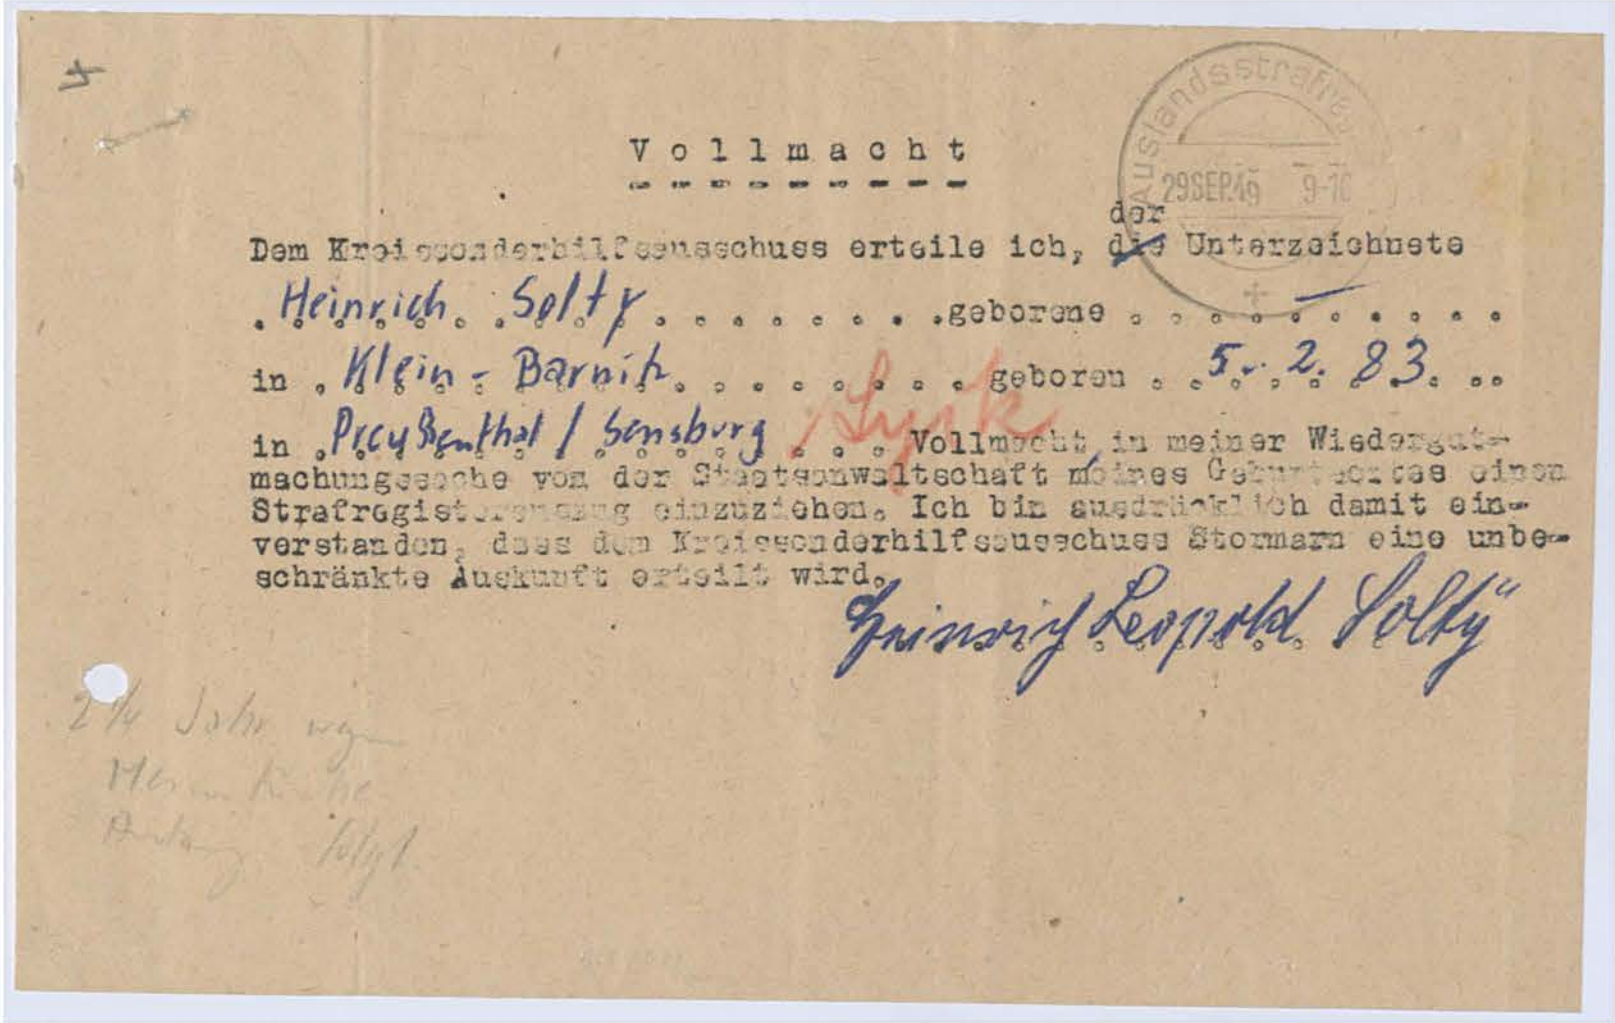 4
Auslandsstrafre
29.SEP.49 9-10
Vollmacht
der
Dem Kreissonderhilfsausschuss erteile ich, die Unterzeichnete
Heinrich Solty geborene —
in Klein-Barnitz geboren 5. 2. 83.
in Preußenthal / Sensburg Lyck Vollmacht, in meiner Wiedergut-
machungssache von der Staatsanwaltschaft meines Geburtsortes einen
Strafregisterauszug einzuziehen. Ich bin ausdrücklich damit ein-
verstanden, dass dem Kreissonderhilfsausschuss Stormarn eine unbe-
schränkte Auskunft erteilt wird.
Heinrich Leopold Solty
2 1/4 Jahr wegen
folgt